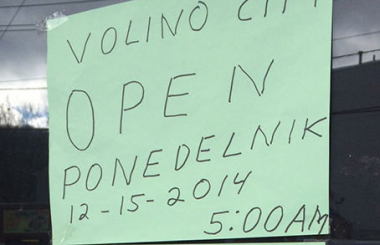 VOLINO CITY
OPEN
PONEDELNIK
12-15-2014
5:00AM